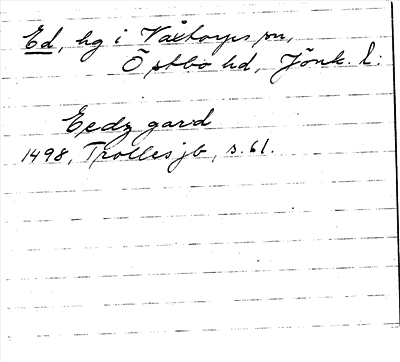 Ed, hg i Våxtorps sn,
Östbo hd, Jönk. l:
Eedz gard
1498, Trolles jb, s. 61.